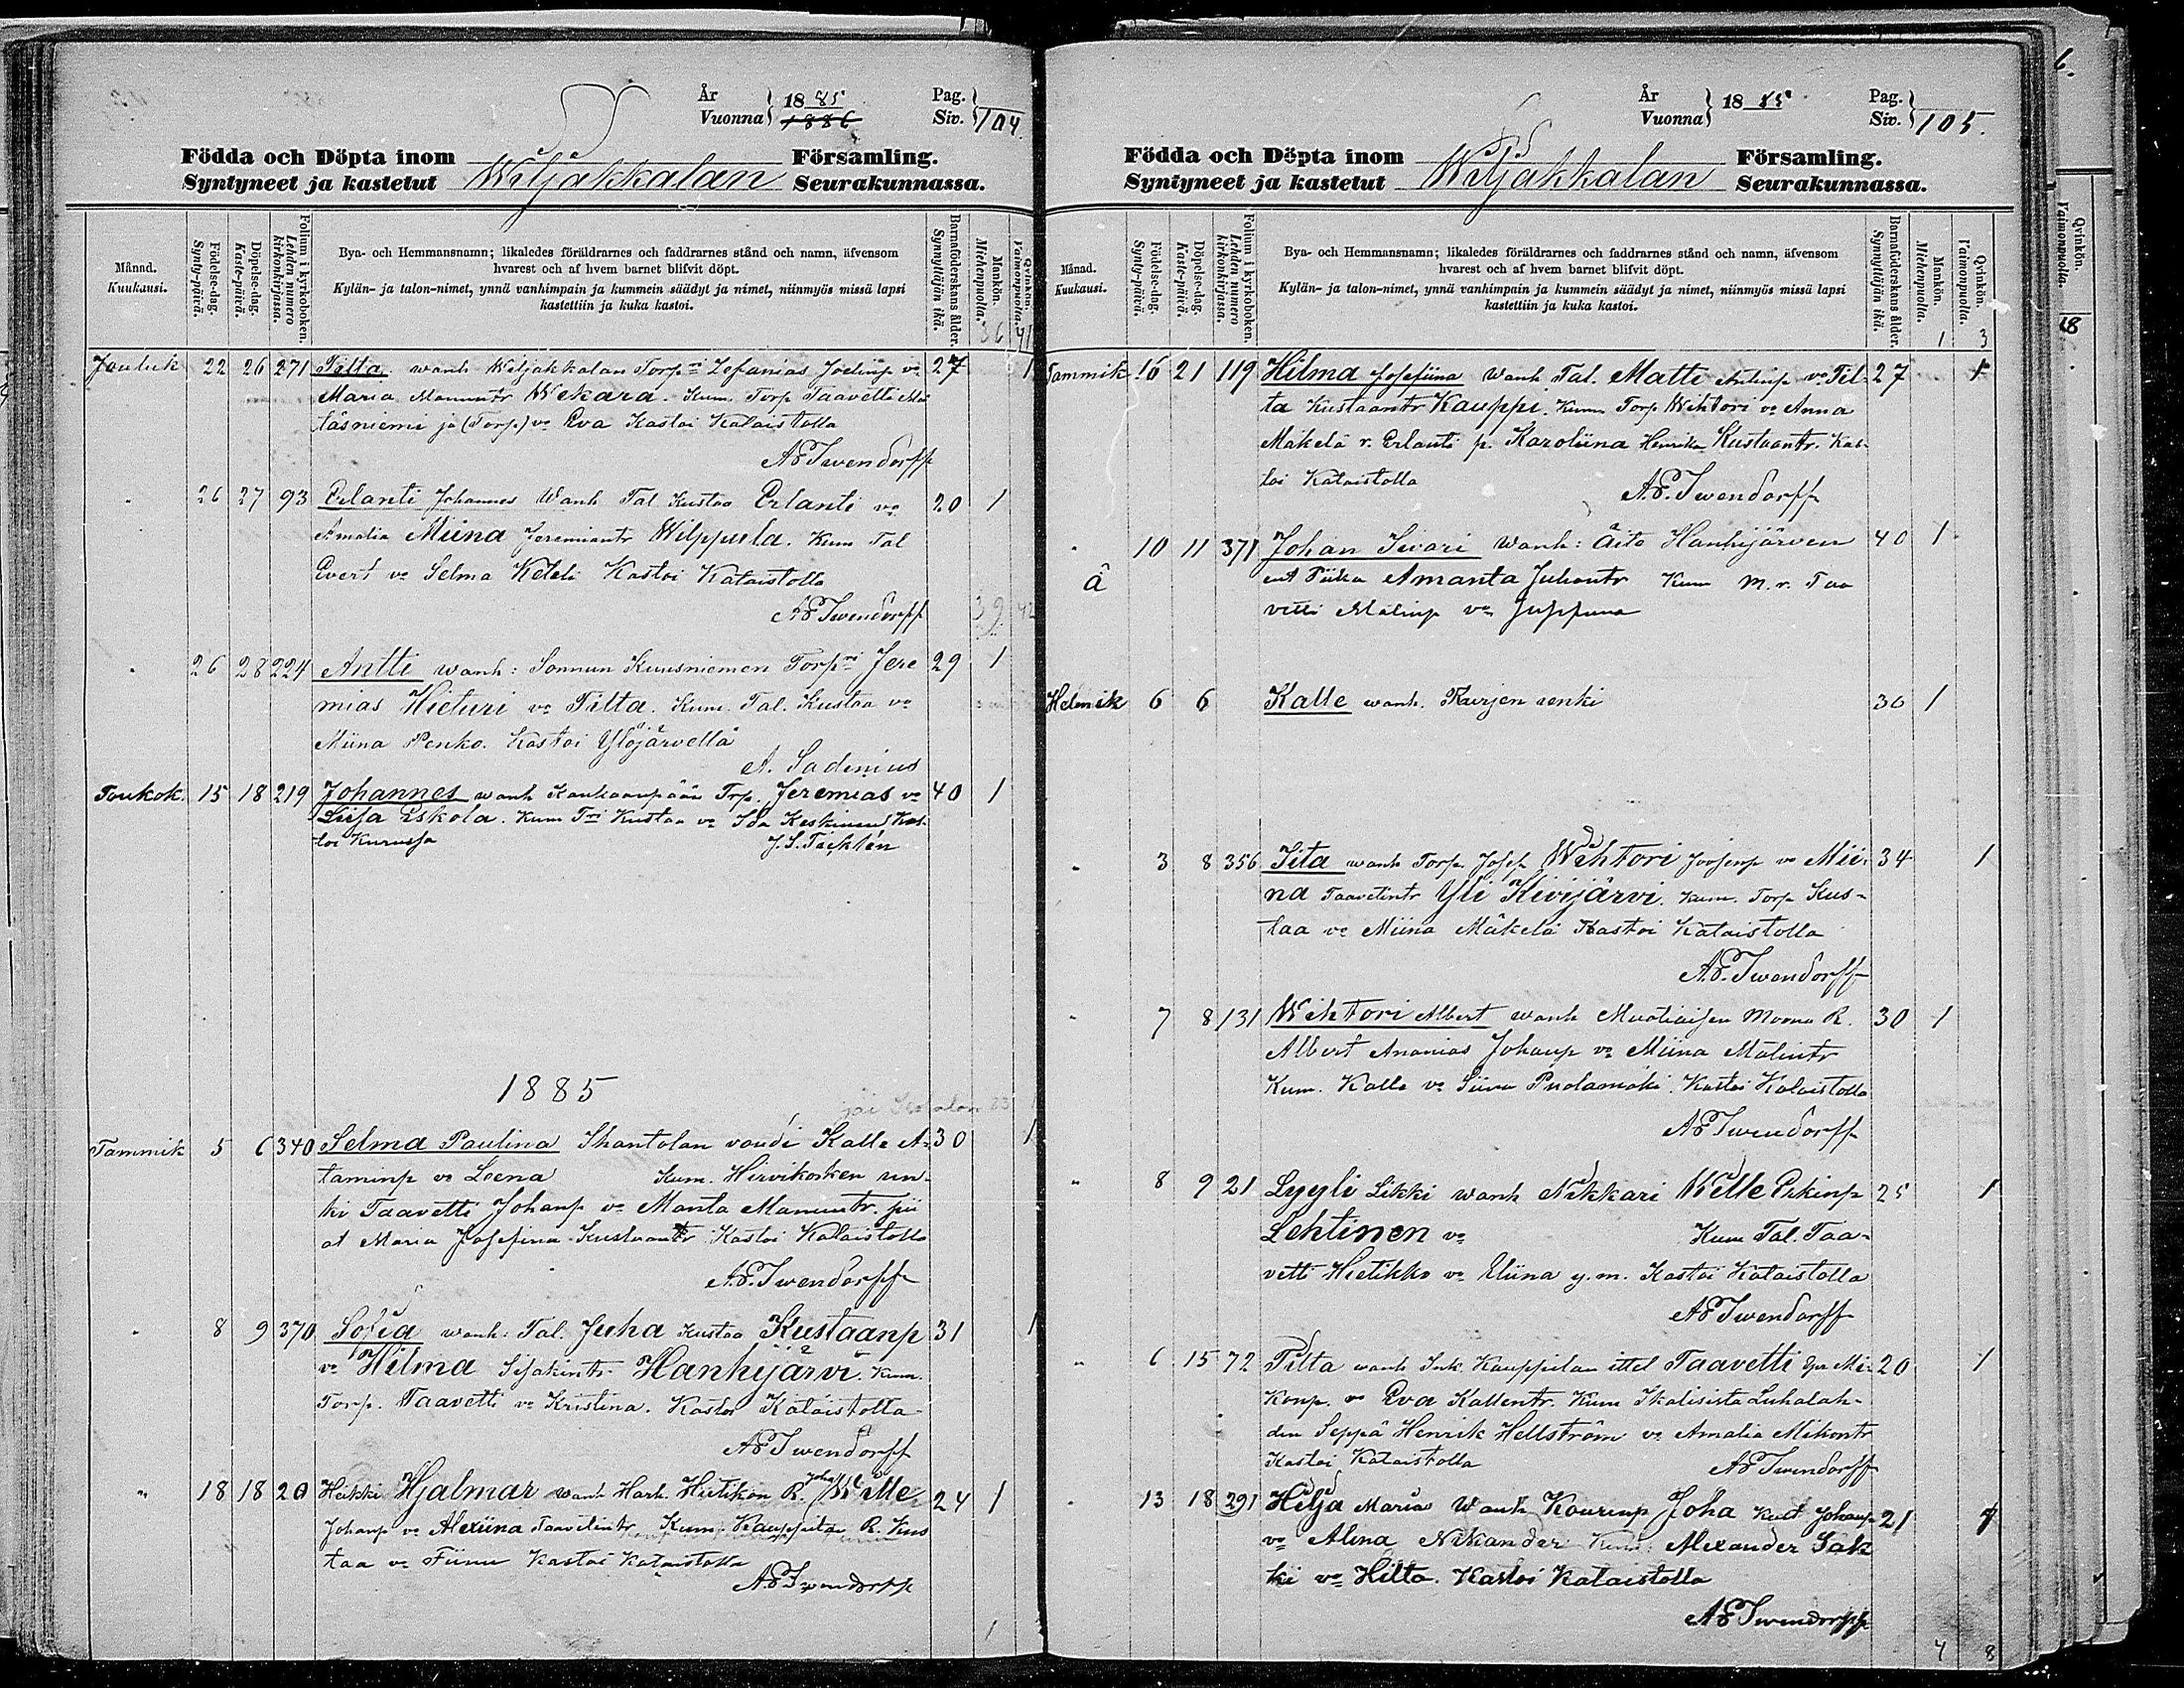 År
Vuonna } 18 85
1886
Pag.
Siv. } 104.
Födda och Döpta inom Wiljakkalan Församling.
Syntyneet ja kastetut Seurakunnassa.
Månad.
Kuukausi.
Födelse-dag.
Synty-päivä.
Döpelse-dag.
Kaste-päivä.
Folium i kyrkoboken.
Lehden numero kirkonkirjassa.
Bya- och Hemmansnamn; likaledes föräldrarnes och faddrarnes stånd och namn, äfvensom
hvarest och af hvem barnet blifvit döpt.
Kylän- ja talon-nimet, ynnä vanhimpain ja kummein säädyt ja nimet, niinmyös missä lapsi
kastettiin ja kuka kastoi.
Barnaföderskans ålder.
Synnyttäjän ikä.
Mankön.
Miehenpuolia.
Qvinkön.
Vaimonpuolia.
36 41
Jouluk 22 26 271 Tilta wanh Wiljakkalan Torpri Zefanias Joelinp va 27 1
Maria Mamuntr Wekara. Kum. Torp Taavetti
täsniemi ja (Torp) va Eva Kastoi Kalaistolla
AF Iwendorff
" 26 27 93 Erlanti Johannes Wanh Tal Kustaa Erlanti va 20 1
Amalia Miina Jeremiantr Wilppula. Kum Tal
Evert va Selma Keteli Kastoi Kataistolla
AF Iwendorff
39 42
" 26 28 224 Antti wanh: Sonnun Kuusniemen Torpri Jere 29 1
mias Hieturi va Tilta. Kum. Tal. Kustaa va
Miina Penko. Kastoi Ylöjärvellä
A. Sadenius
Toukok. 15 18 219 Johannes wanh Kankaanpään Trp. Jeremias va 40 1
Liisa Eskola. Kum Tri Kustaa va Ida Keskinen Kas-
toi Kurussa J. S. Täckhén
1885
Tammik 5 6 340 Selma Paulina Shantolan voudi Kalle A- 30 1
taminp va Leena Kum. Hirvikosken ren-
ki Taavetti Johanp va Manta Mamuntr. pii
at Maria Josefina Kustaantr Kastoi Kataistolla
A.F. Iwendorff
" 8 9 370 Sofia wanh: Tal. Juha Kustaa Kustaanp 31 1
va Hilma Isakintr Hanhijärvi. Kum.
Torp. Taavetti va Kristina. Kastoi Kataistolla
AF Iwendorff
" 18 18 20 Heikki Hjalmar wanh Hark. Hietikon R. Juha Wille 24 1
Johanp va Alexiina Taavetintr Kum. Kauppilan R. Kus
taa va Fiinu Kastoi Kataistolla
AF Iwendorff
1
År
Vuonna } 18 85
Pag.
Siv. } 105.
Födda och Döpta inom Wiljakkalan Församling.
Syntyneet ja kastetut Seurakunnassa.
Månad.
Kuukausi.
Födelse-dag.
Synty-päivä.
Döpelse-dag.
Kaste-päivä.
Folium i kyrkoboken.
Lehden numero kirkonkirjassa.
Bya- och Hemmansnamn; likaledes föräldrarnes och faddrarnes stånd och namn, äfvensom
hvarest och af hvem barnet blifvit döpt.
Kylän- ja talon-nimet, ynnä vanhimpain ja kummein säädyt ja nimet, niinmyös missä lapsi
kastettiin ja kuka kastoi.
Barnaföderskans ålder.
Synnyttäjän ikä.
Mankön.
Miehenpuolia.
Qvinkön.
Vaimonpuolia.
1 3
Tammik 16 21 119 Hilma Josefiina Wanh Tal. Matti Antinp va Til- 27 1
ta Kustaantr Kauppi. Kum Torp Wihtori va Anna
Mäkelä r. Erlanti p. Karoliina Henrika Kustaantr. Kas-
toi Kataistolla
A.F. Iwendorff
" 10 11 371 Johan Iivari Wanh: Äite Hanhijärven 40 1
Ä
ent Piika Amanta Juhantr Kum M. r. Taa
vetti Matinp va Juppuna
Helmik 6 6 Kalle wanh. Kurjen renki 36 1
" 3 8 356 Iita wanh Torp Josef Wihtori Joosenp va Mii- 34 1
na Taavetintr Yli Kivijärvi. Kum. Torp Kus-
taa va Miina Mäkelä Kastoi Kataistolla
A.F. Iwendorff
" 7 8 131 Wihtori Albert wanh Muotiaisen Muona R. 30 1
Albert Ananias Johanp va Miina Matintr
Kum. Kalle va Siiva Puolamäki. Kastoi Kataistolla
AF Iwendorff
" 8 9 21 Lyyli Likki wanh Nikkari Wille Erkinp 25 1
Lehtinen va Kum Tal. Taa-
vetti Hietikko va Eliina y.m. Kastoi Kataistolla
AF Iwendorff
" 6 15 72 Tilta wanh Ink. Kauppilan ittel Taavetti Mi- 20 1
konp. va Eva Kallentr. Kum Ikalisista Luhalah-
den Seppä Henrik Hellström va Amalia Mikontr
Kastoi Kataistolla AF Iwendorff
" 13 18 291 Hilja Maria Wanh Kourinp Joha Kust Johanp 21 1
va Alina Nikander Kum. Alexander Sak
ki va Hilta. Kastoi Kataistolla
AF Iwendorff
4 8
6.
Qvinkön.
Vaimonpuolia.
18